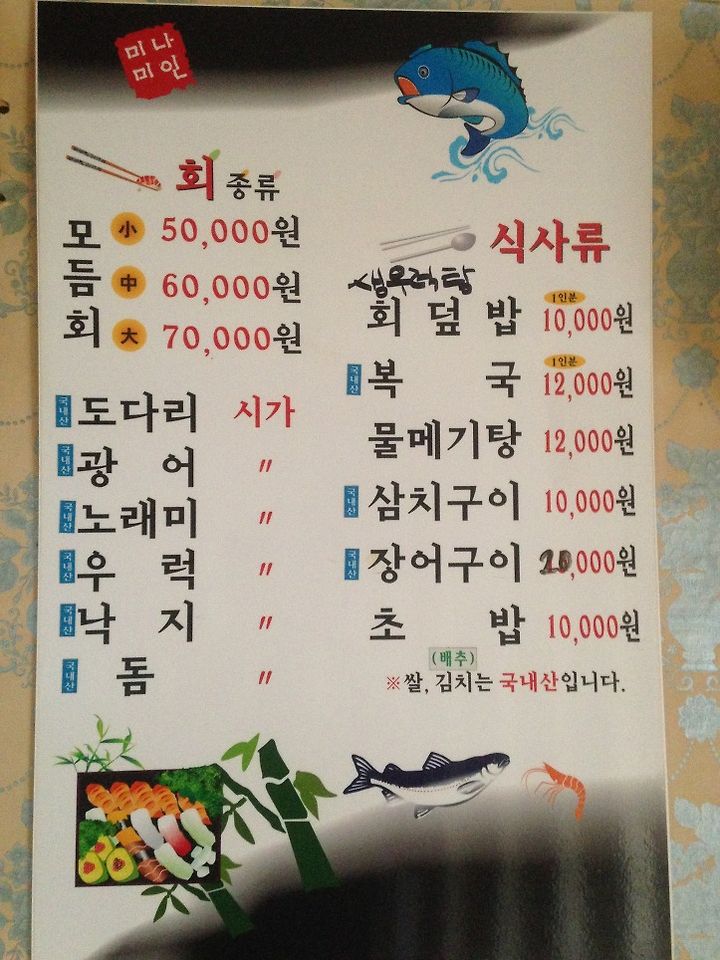 미나
미인
회 종류
모듬회
小 50,000원
中 60,000원
大 70,000원
국내산 도다리 시가
국내산 광어 〃
국내산 노래미 〃
국내산 우럭 〃
국내산 낙지 〃
국내산 돔 〃
식사류
생우럭탕
회덮밥 1인분 10,000원
국내산 복국 1인분 12,000원
물메기탕 12,000원
국내산 삼치구이 10,000원
국내산 장어구이 20,000원
초밥 10,000원
(배추)
※쌀, 김치는 국내산입니다.